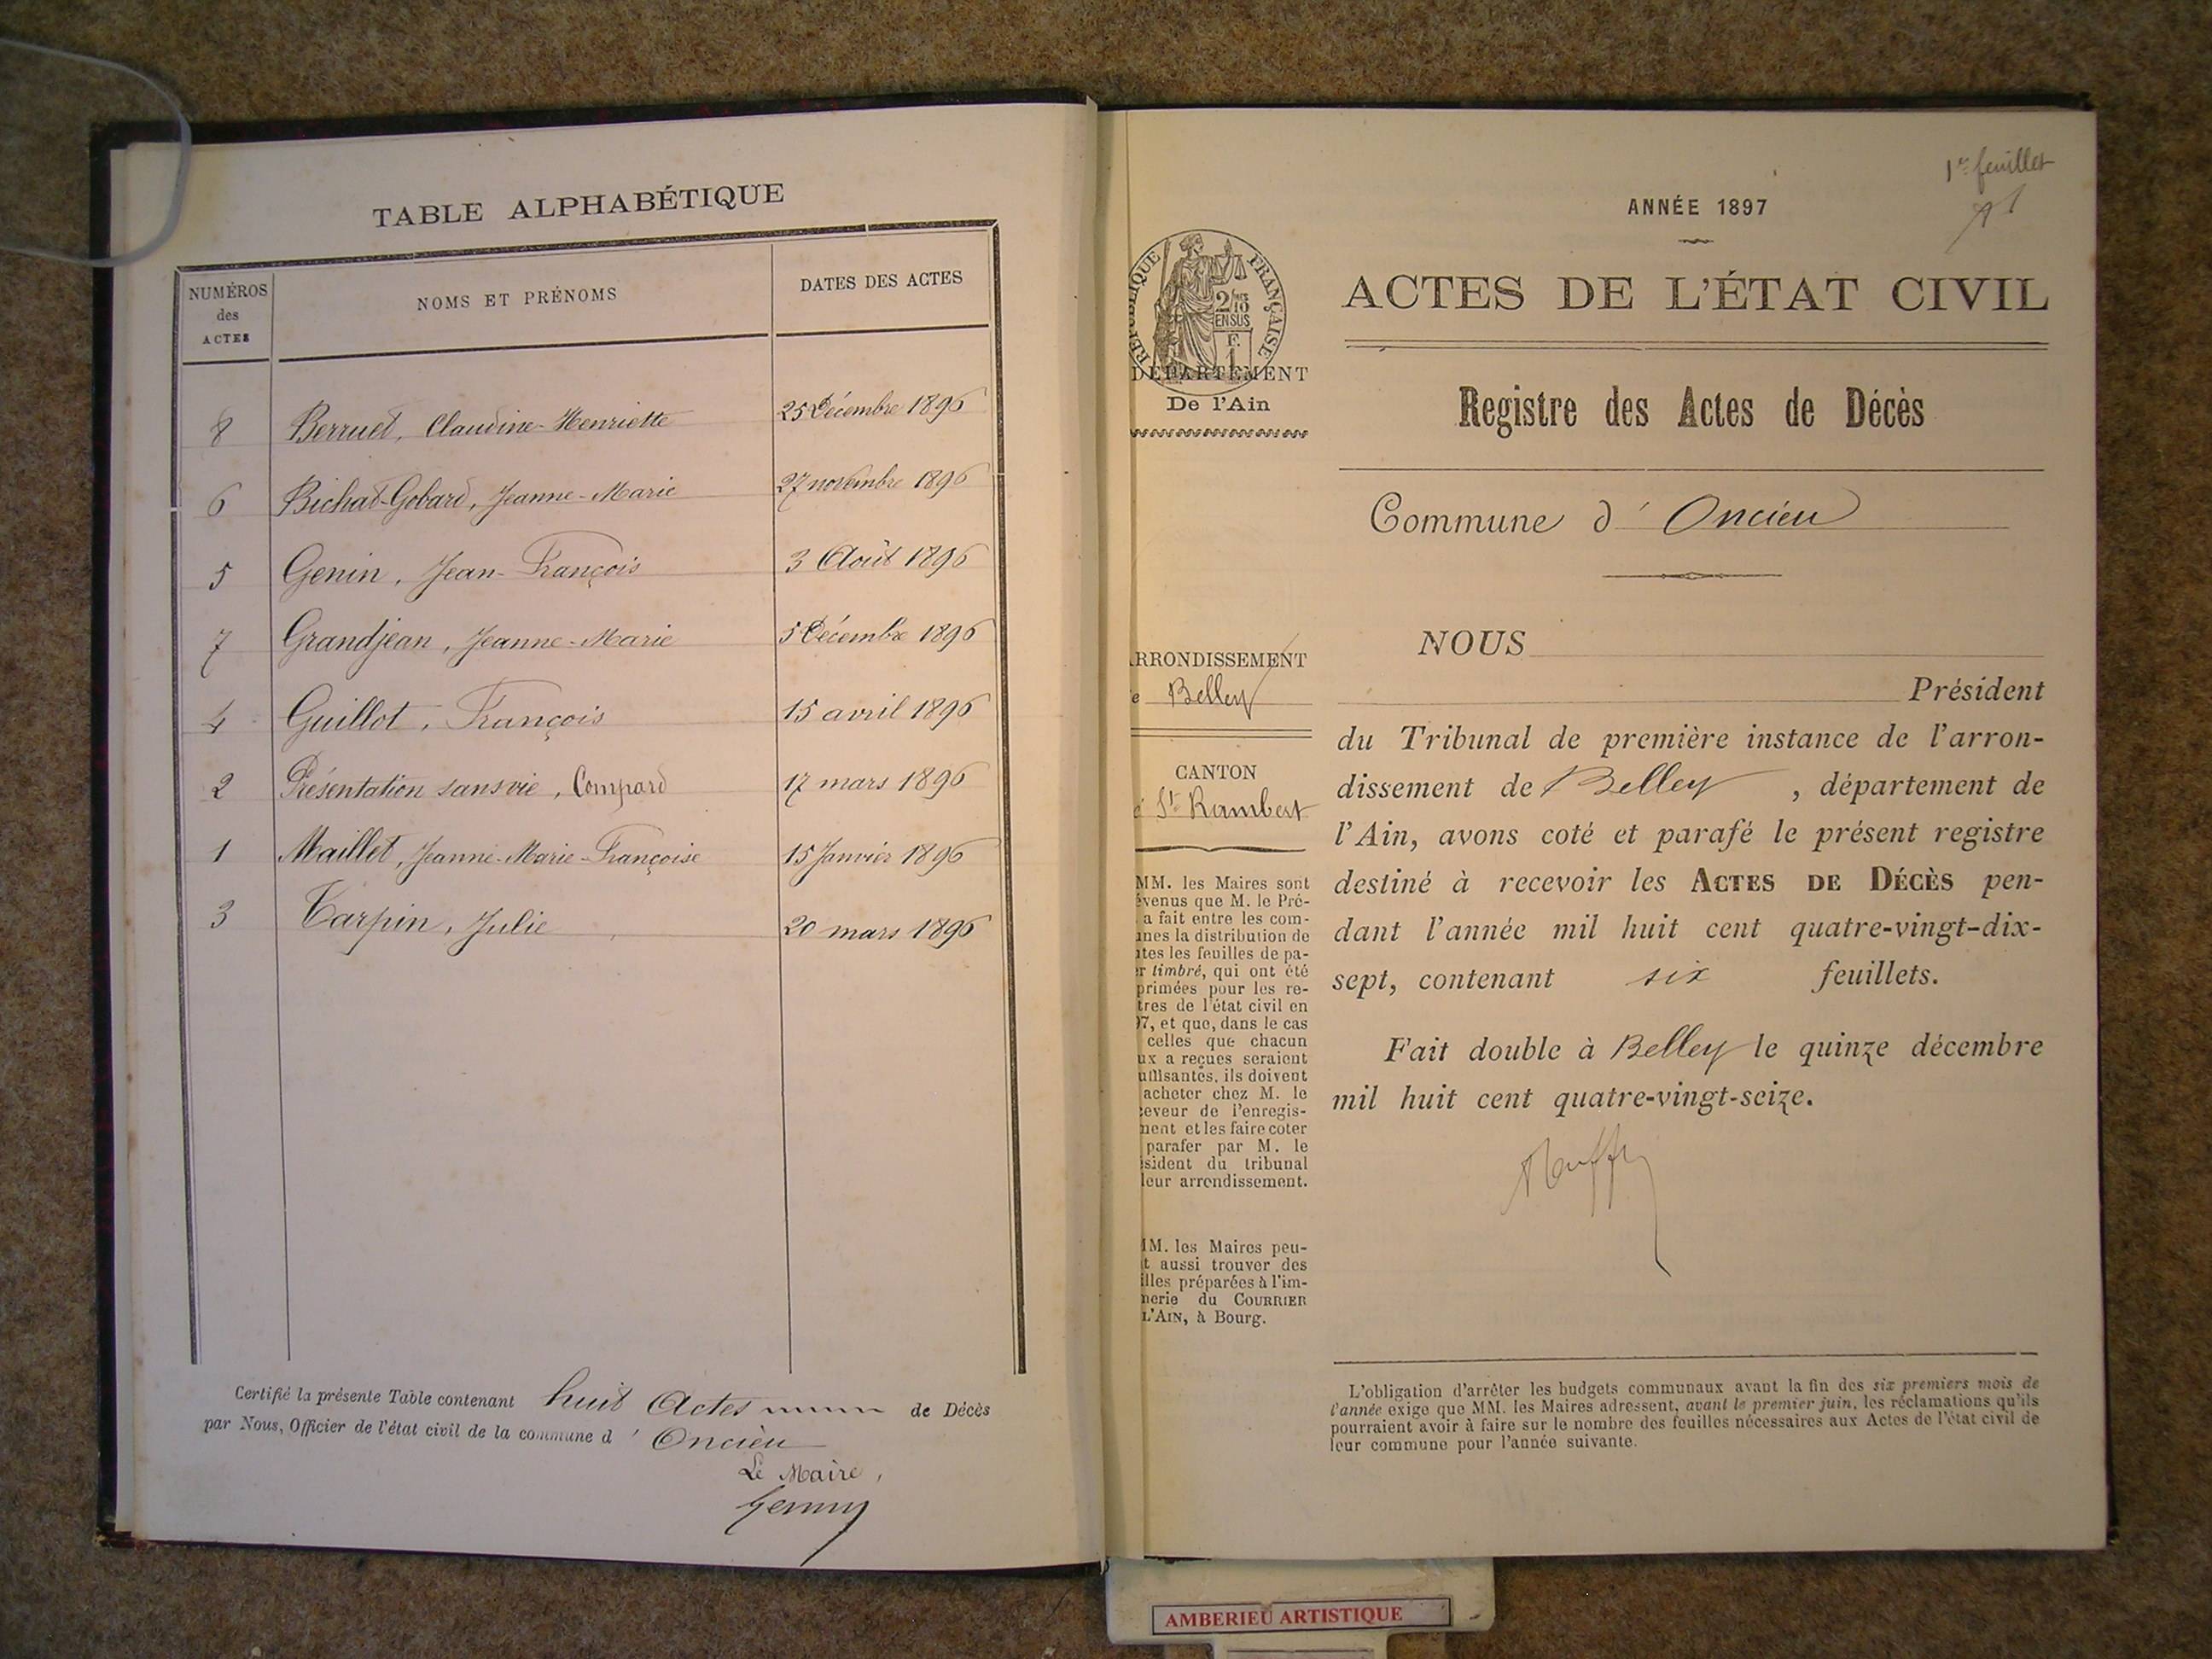 TABLE ALPHABÉTIQUE
NUMÉROS des ACTES
NOMS ET PRÉNOMS
DATES DES ACTES
8 Berruet, Claudine-Henriette 25 Décembre 1896
6 Bichat-Gobard, Jeanne-Marie 27 novembre 1896
5 Genin, Jean-François 3 Août 1896
7 Grandjean, Jeanne-Marie 5 Décembre 1896
4 Guillot, François 15 avril 1896
2 Présentation sans vie, Compard 17 mars 1896
1 Maillet, Jeanne-Marie-Françoise 15 Janvier 1896
3 Tarpin, Julie 20 mars 1896
Certifié la présente Table contenant huit Actes de Décès
par Nous, Officier de l'état civil de la commune d' Oncieu
Le Maire,
1er feuillet
ANNÉE 1897
RÉPUBLIQUE FRANÇAISE
2/10
EN SUS
F.
1
DÉPARTEMENT
De l'Ain
ACTES DE L'ÉTAT CIVIL
Registre des Actes de Décès
Commune d' Oncieu
RRONDISSEMENT
e Belley
CANTON
é St Rambert
MM. les Maires sont
évenus que M. le Pré-
a fait entre les com-
unes la distribution de
utes les feuilles de pa-
er timbré, qui ont été
primées pour les re-
tres de l'état civil en
97, et que, dans le cas
celles que chacun
ux a reçues seraient
uffisantes, ils doivent
acheter chez M. le
ceveur de l'enregis-
ment et les faire coter
parafer par M. le
ésident du tribunal
leur arrondissement.
MM. les Maires peu-
t aussi trouver des
illes préparées à l'im-
merie du COURRIER
L'AIN, à Bourg.
NOUS
Président
du Tribunal de première instance de l'arron-
dissement de Belley, département de
l'Ain, avons coté et parafé le présent registre
destiné à recevoir les ACTES DE DÉCÈS pen-
dant l'année mil huit cent quatre-vingt-dix-
sept, contenant six feuillets.
Fait double à Belley le quinze décembre
mil huit cent quatre-vingt-seize.
L'obligation d'arrêter les budgets communaux avant la fin des six premiers mois de
l'année exige que MM. les Maires adressent, avant le premier juin, les réclamations qu'ils
pourraient avoir à faire sur le nombre des feuilles nécessaires aux Actes de l'état civil de
leur commune pour l'année suivante.
AMBERIEU ARTISTIQUE